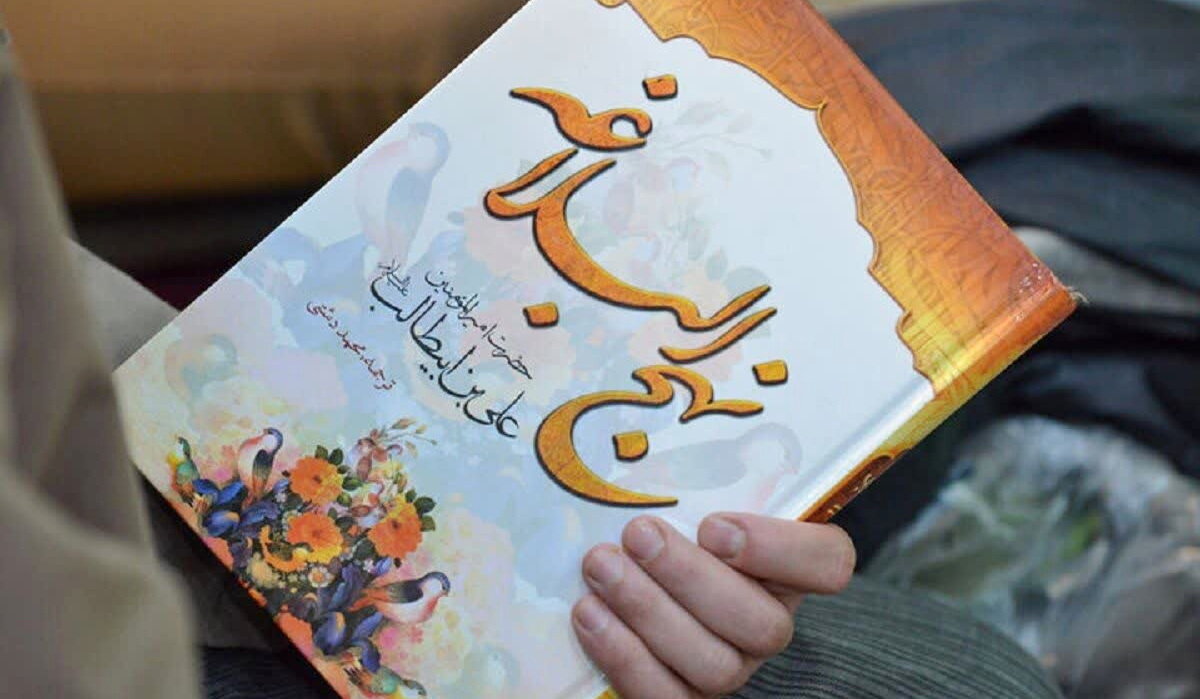 نهج البلاغه
حضرت امیرالمؤمنین
علی بن ابیطالب علیه‌السلام
ترجمه: محمد دشتی